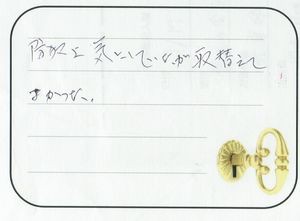 防犯上気にしていたが取替えて
よかった。